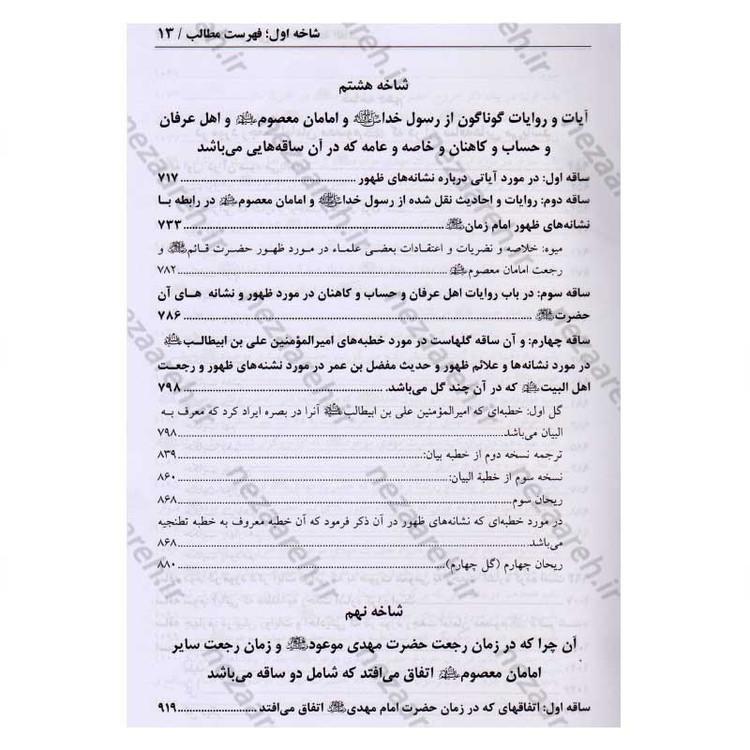 شاخه اول؛ فهرست مطالب / ۱۳
شاخه هشتم
آیات و روایات گوناگون از رسول خداﷺ و امامان معصوم و اهل عرفان
و حساب و کاهنان و خاصه و عامه که در آن ساقه‌هایی می‌باشد
ساقه اول: در مورد آیاتی درباره نشانه‌های ظهور ........ ۷۱۷
ساقه دوم: روایات و احادیث نقل شده از رسول خداﷺ و امامان معصوم در رابطه با
نشانه‌های ظهور امام زمان ........ ۷۳۳
میوه: خلاصه و نضریات و اعتقادات بعضی علماء در مورد ظهور حضرت قائم و
رجعت امامان معصوم ........ ۷۸۲
ساقه سوم: در باب روایات اهل عرفان و حساب و کاهنان در مورد ظهور و نشانه های آن
حضرت ........ ۷۸۶
ساقه چهارم: و آن ساقه گلهاست در مورد خطبه‌های امیرالمؤمنین علی بن ابیطالب
در مورد نشانه‌ها و علائم ظهور و حدیث مفضل بن عمر در مورد نشنه‌های ظهور و رجعت
اهل البیت که در آن چند گل می‌باشد. ........ ۷۹۸
گل اول: خطبه‌ای که امیرالمؤمنین علی بن ابیطالب آنرا در بصره ایراد کرد که معرف به
البیان می‌باشد ........ ۷۹۸
ترجمه نسخه دوم از خطبه بیان: ........ ۸۳۹
نسخه سوم از خطبة البیان: ........ ۸۶۰
ریحان سوم ........ ۸۶۸
در مورد خطبه‌ای که نشانه‌های ظهور در آن ذکر فرمود که آن خطبه معروف به خطبه تطنجیه
می‌باشد ........ ۸۶۸
ریحان چهارم (گل چهارم) ........ ۸۸۰
شاخه نهم
آن چرا که در زمان رجعت حضرت مهدی موعود و زمان رجعت سایر
امامان معصوم اتفاق می‌افتد که شامل دو ساقه می‌باشد
ساقه اول: اتفاقهای که در زمان حضرت امام مهدی اتفاق می‌افتد ........ ۹۱۹
nezaareh.ir